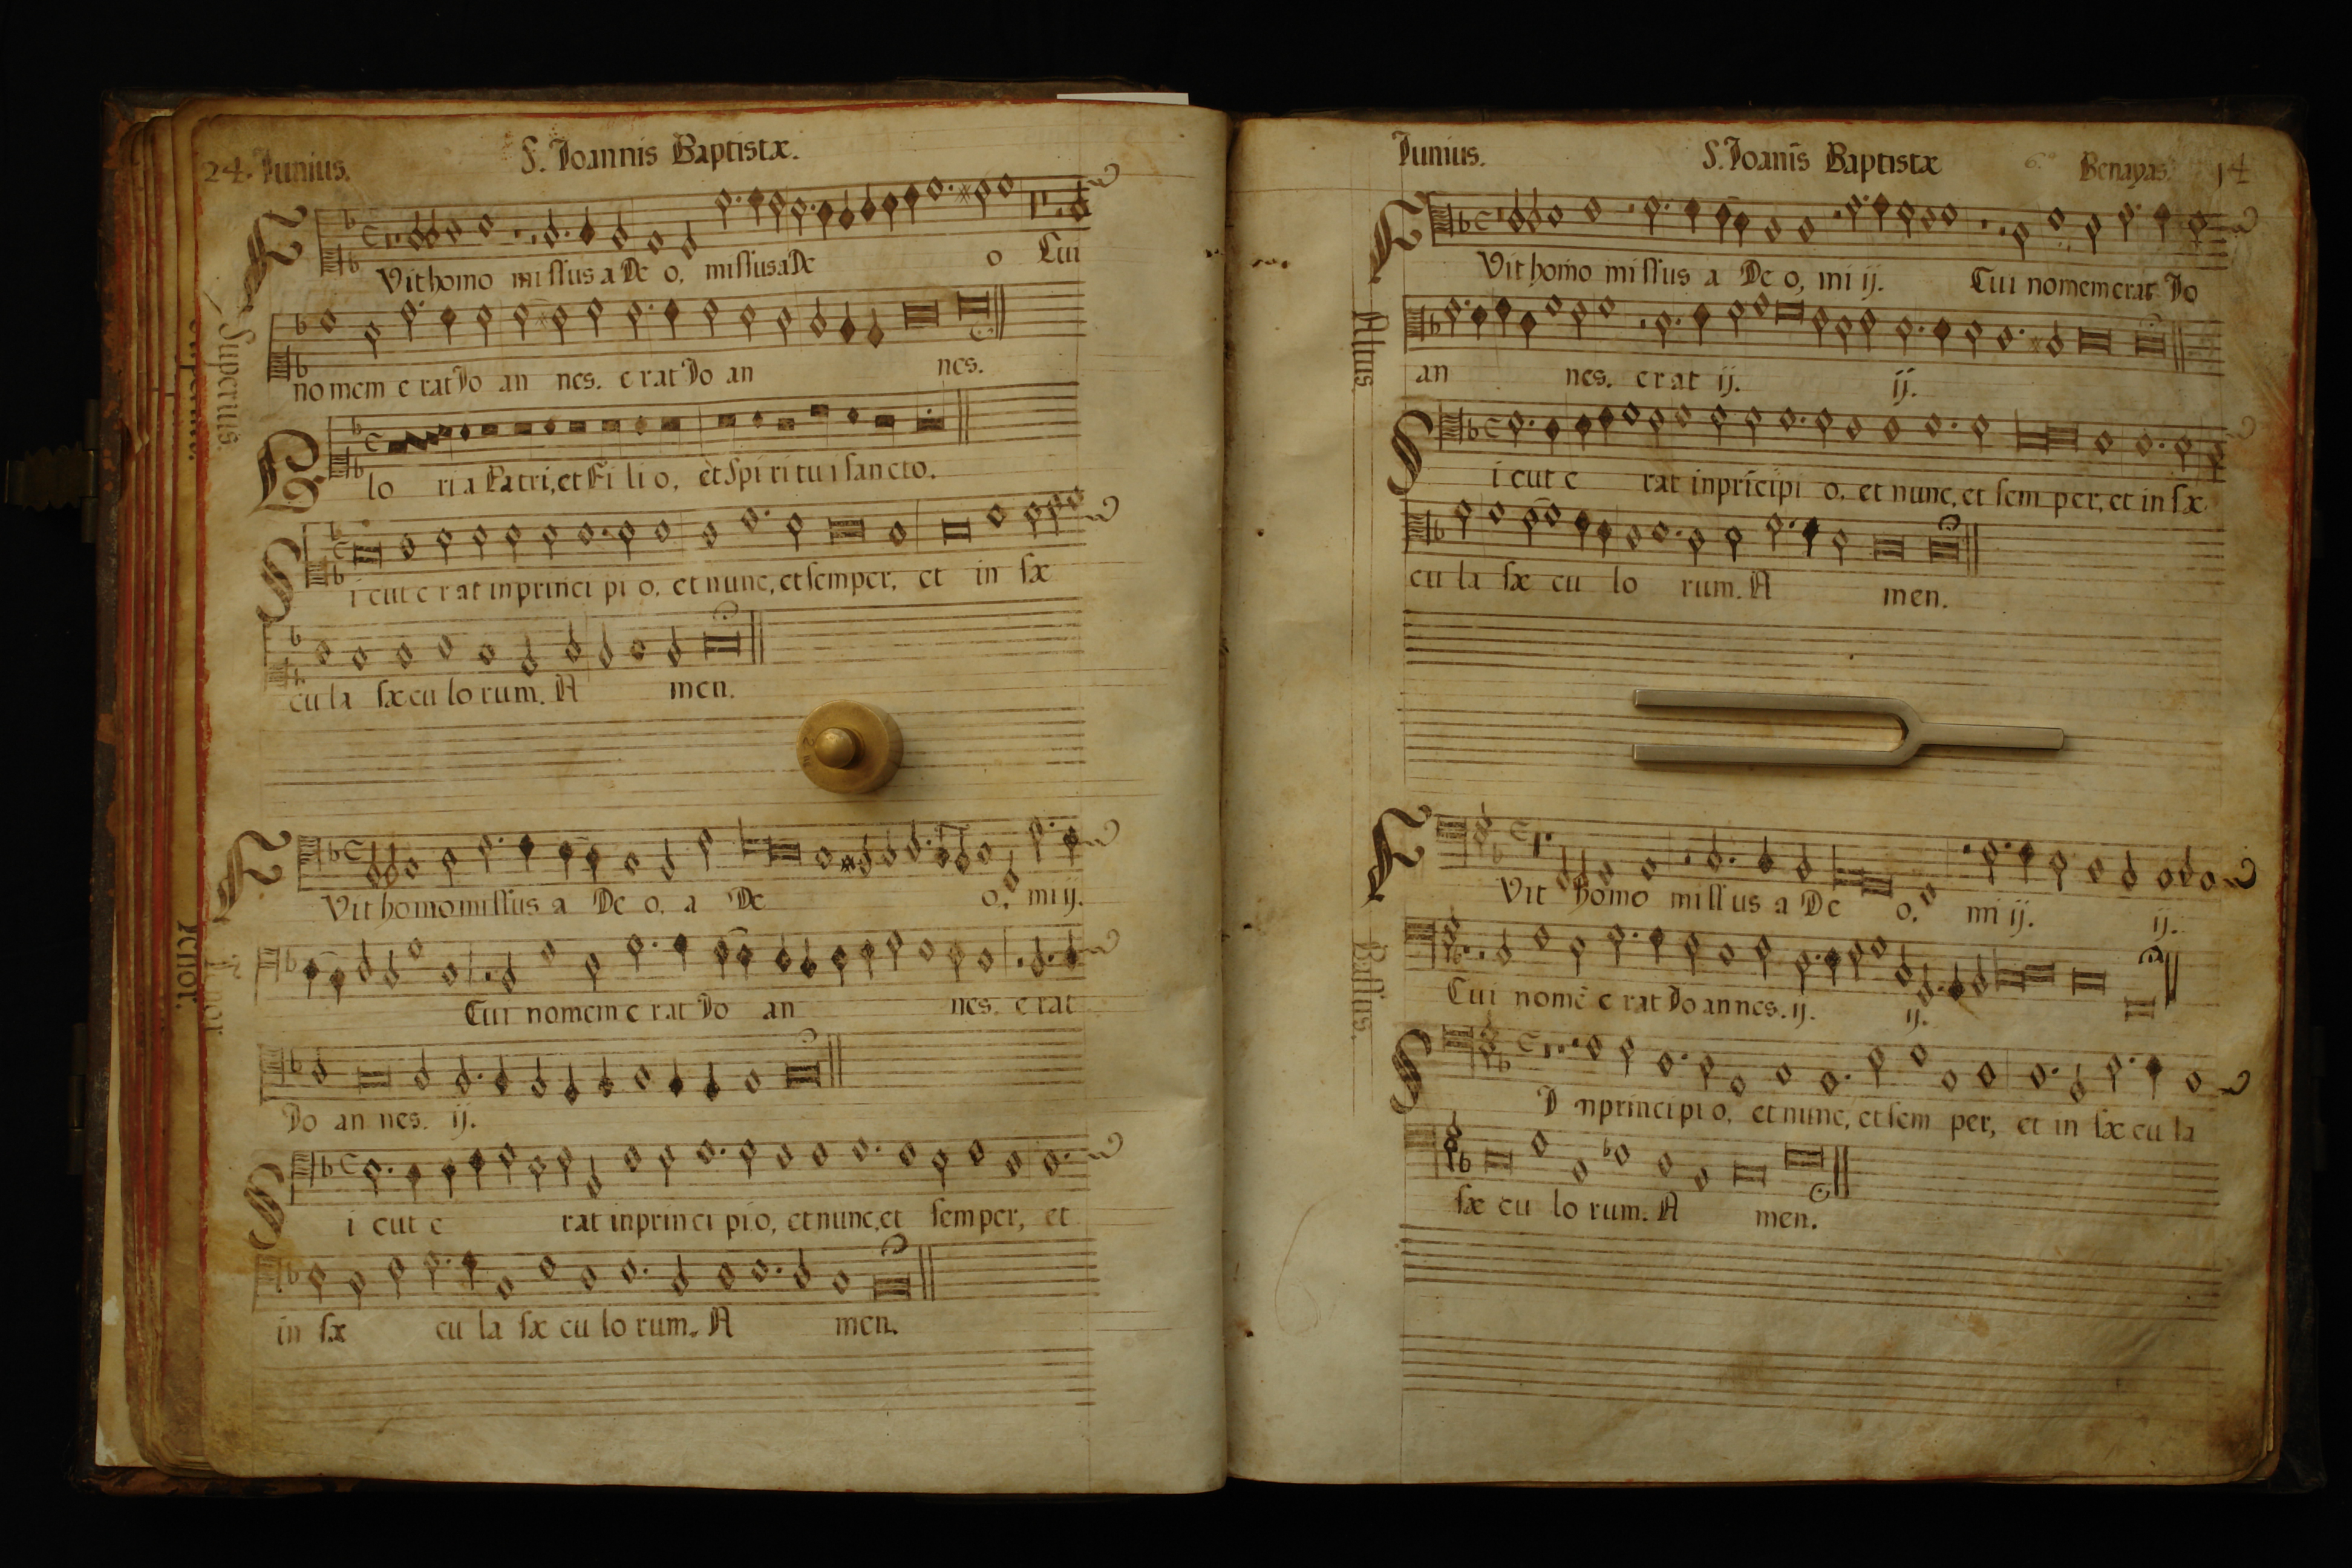 24. Junius.
S. Joannis Baptistæ.
Superius.
F Vit homo missus a De o, missus a De o Cui
no mem e rat Jo an nes. e rat Jo an nes.
G lo ri a Patri, et Fi li o, et Spi ri tu i sancto.
S i cut e r at in princi pi o, et nunc, et semper, et in sæ
cu la sæ cu lo rum. A men.
Tenor.
F Vit homo missus a De o, a De o, mi ij.
Cui nomem e rat Jo an nes. e rat
Jo an nes. ij.
S i cut e rat in prin ci pi o, et nunc, et semper, et
in sæ cu la sæ cu lo rum. A men.
Junius.
S. Joanīs Baptistæ
6.º Benayas. 14
Altus
F Vit homo missus a De o, mi ij. Cui nomem erat Jo
an nes. e rat ij. ij.
S i cut e rat in principi o, et nunc, et sem per, et in sæ
cu la sæ cu lo rum. A men.
Bassus.
F Vit homo miss us a De o. mi ij. ij.
Cui nomē e rat Jo an nes. ij. ij.
S I n principi o, et nunc, et sem per, et in sæ cu la
sæ cu lo rum. A men.